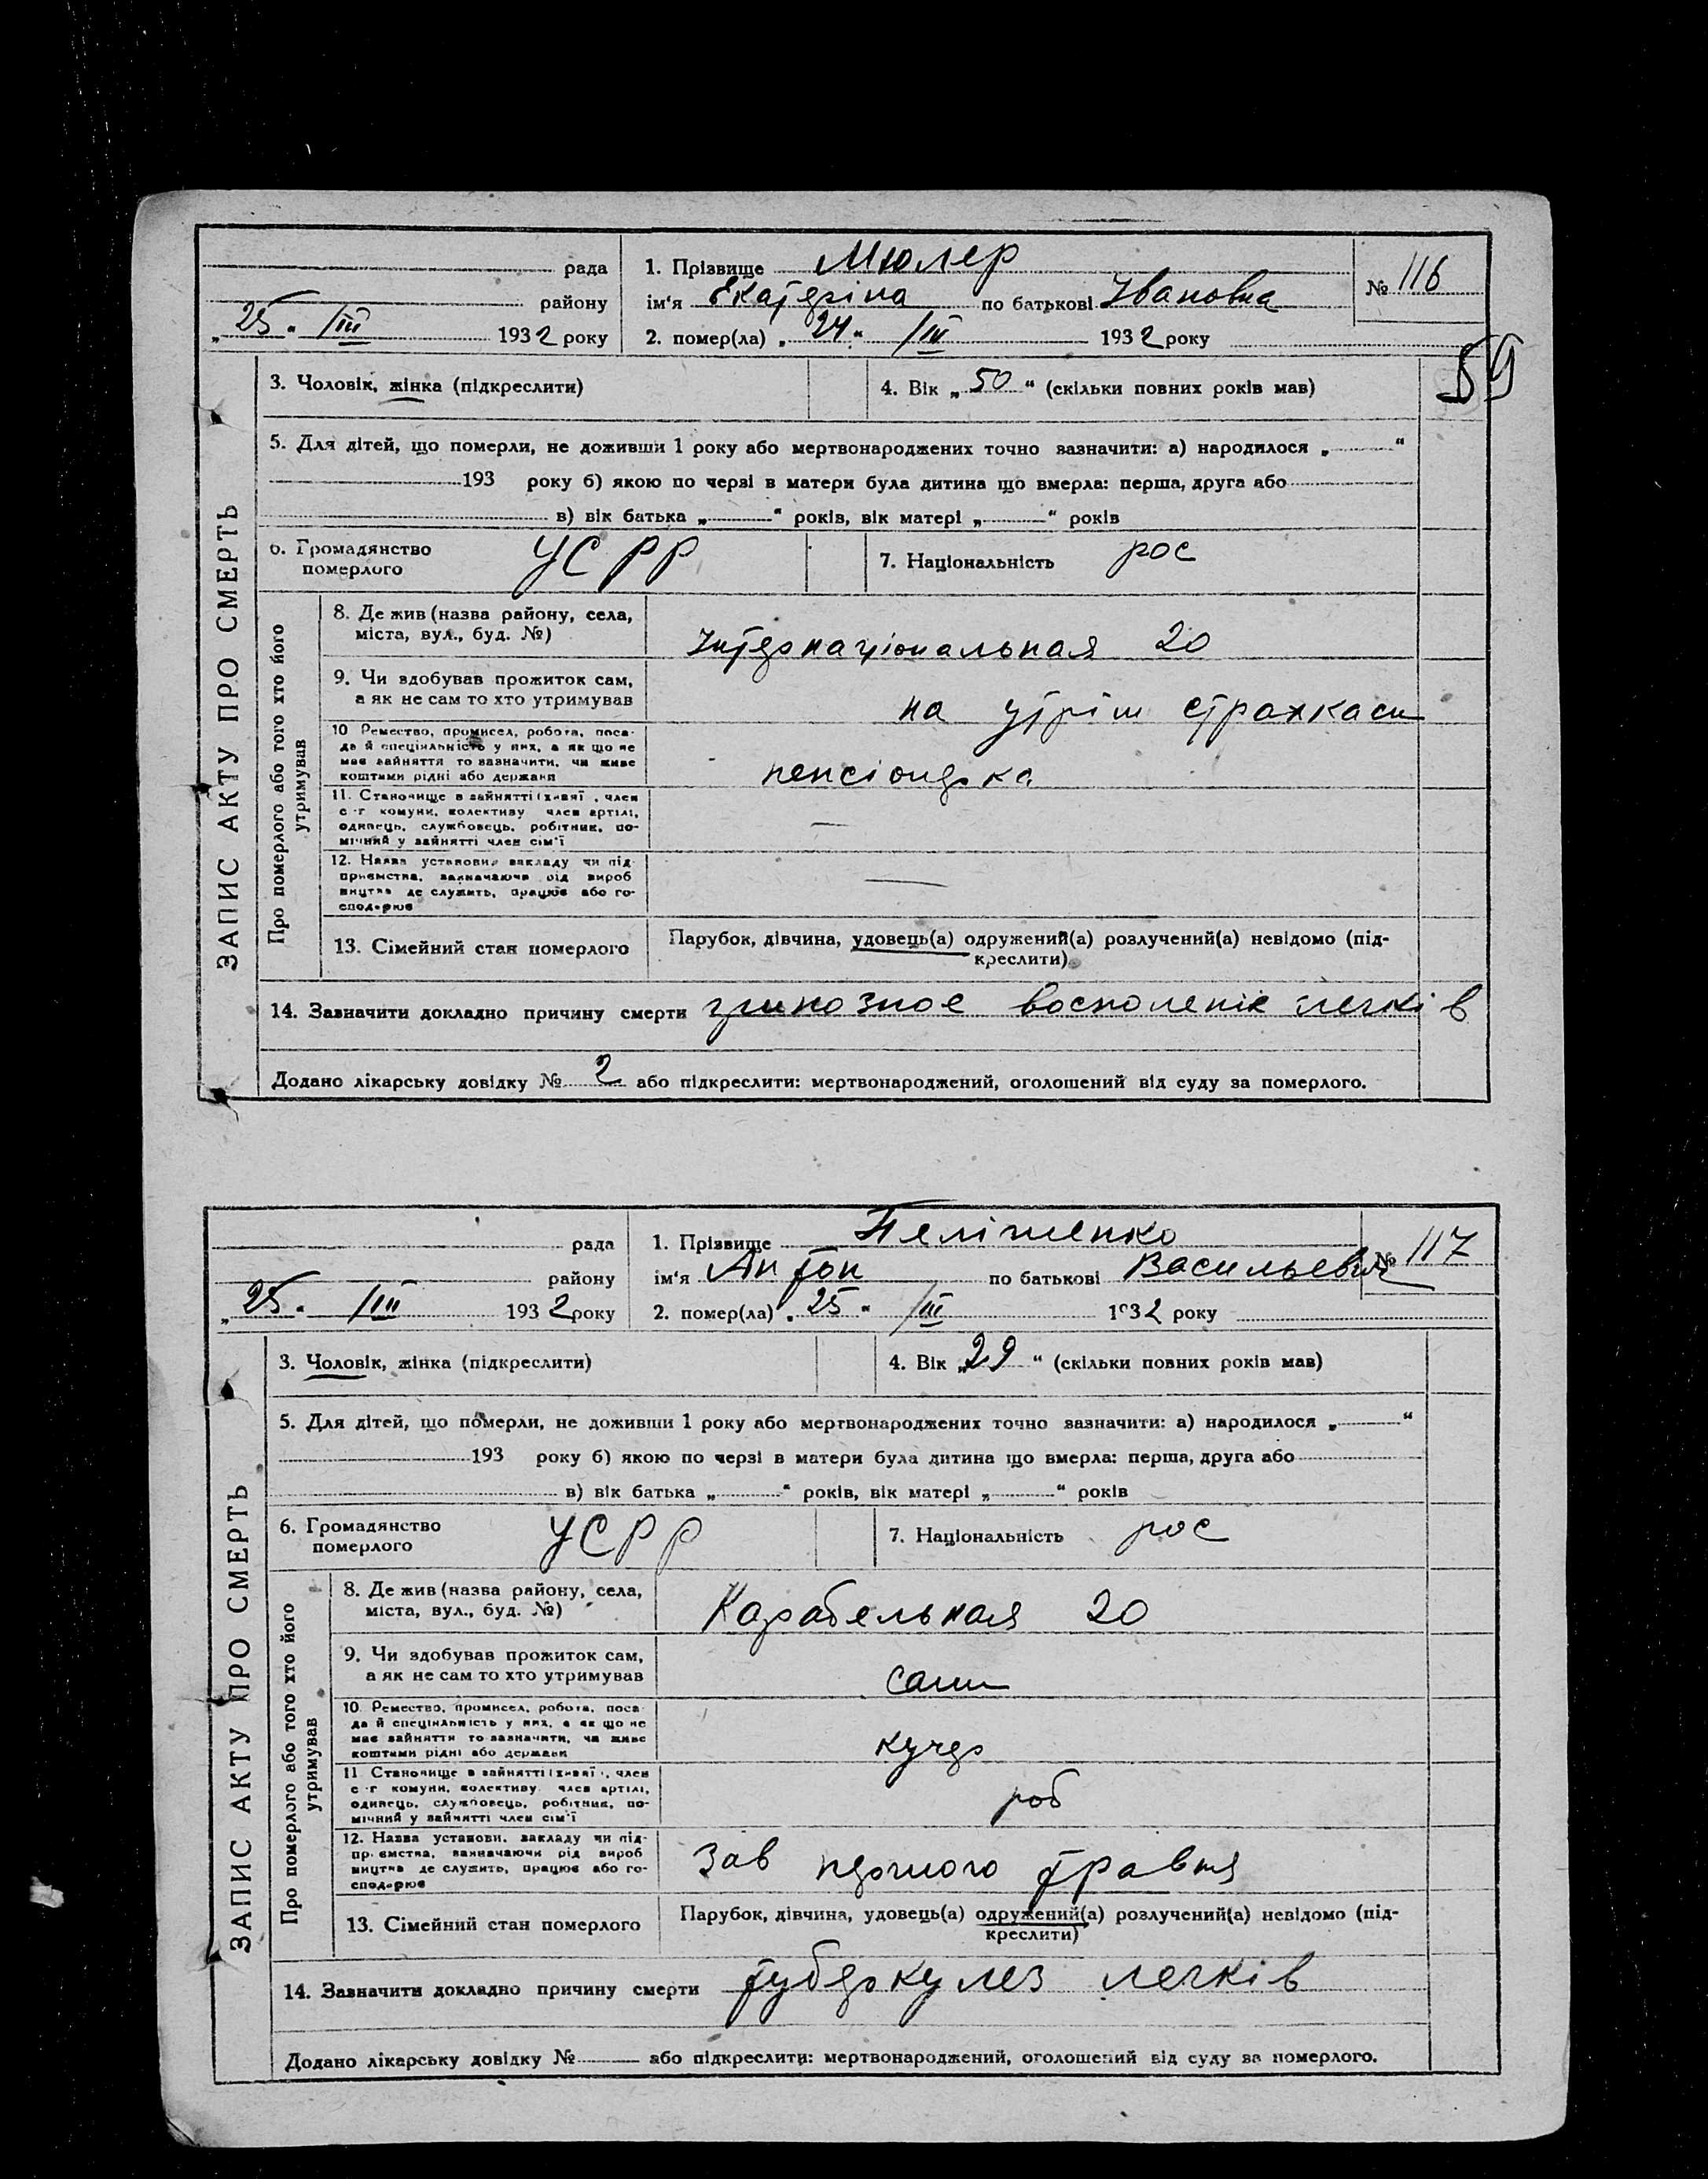 рада
району
„25“ /III 1932 року
1. Прізвище Мюлер
ім‘я Екатеріна по батькові Івановна
2. помер(ла) „24“ /III 1932 року
№ 116
59
ЗАПИС АКТУ ПРО СМЕРТЬ
3. Чоловік, жінка (підкреслити)
4. Вік „50“ (скільки повних років мав)
5. Для дітей, що померли, не доживши 1 року або мертвонароджених точно зазначити: а) народилося „ “
193 року б) якою по черзі в матери була дитина що вмерла: перша, друга або
в) вік батька „ “ років, вік матері „ “ років
6. Громадянство
померлого
УСРР
7. Національність рос
Про померлого або того хто його
утримував
8. Де жив (назва району, села,
міста, вул., буд. №)
Інтернаціональная 20
9. Чи здобував прожиток сам,
а як не сам то хто утримував
на утрім страхкаси
10 Ремество, промисел, робота, поса-
да й спеціяльність у них, а як що не
має зайняття то зазначити, чи живе
коштами рідні або держави
пенсіонерка
11. Становище в зайнятті (хазяї, член
с-г комуни, колективу член артілі,
одинець, службовець, робітник, по-
мічний у зайнятті член сім‘ї
—
12. Назва установи, закладу чи під-
приємства, зазначаючи рід вироб
ництва де служить, працює або го-
сподарює
—
13. Сімейний стан померлого
Парубок, дівчина, удовець(а) одружений(а) розлучений(а) невідомо (під-
креслити)
14. Зазначити докладно причину смерти грипозное восполеніе легків
Додано лікарську довідку № 2 або підкреслити: мертвонароджений, оголошений від суду за померлого.
рада
району
„25“ /III 1932 року
1. Прізвище
ім‘я Антон по батькові Васильевич
2. помер(ла) „25“ /III 1932 року
№ 117
ЗАПИС АКТУ ПРО СМЕРТЬ
3. Чоловік, жінка (підкреслити)
4. Вік „29“ (скільки повних років мав)
5. Для дітей, що померли, не доживши 1 року або мертвонароджених точно зазначити: а) народилося „ “
193 року б) якою по черзі в матери була дитина що вмерла: перша, друга або
в) вік батька „ “ років, вік матері „ “ років
6. Громадянство
померлого
УСРР
7. Національність рос
Про померлого або того хто його
утримував
8. Де жив (назва району, села,
міста, вул., буд. №)
Карабельная 20
9. Чи здобував прожиток сам,
а як не сам то хто утримував
сам
10. Ремество, промисел, робота, поса-
да й спеціяльність у них, а як що не
має зайняття то зазначити, чи живе
коштами рідні або держави
кучер
11 Становище в зайнятті (хазяї, член
с-г комуни, колективу член артілі,
одинець, службовець, робітник, по-
мічний у зайнятті член сім‘ї
роб
12. Назва установи, закладу чи під-
приємства, зазначаючи рід вироб
ництва де служить, працює або го-
сподарює
Зав першого травня
13. Сімейний стан померлого
Парубок, дівчина, удовець(а) одружений(а) розлучений(а) невідомо (під-
креслити)
14. Зазначити докладно причину смерти туберкулез легків
Додано лікарську довідку № або підкреслити: мертвонароджений, оголошений від суду за померлого.